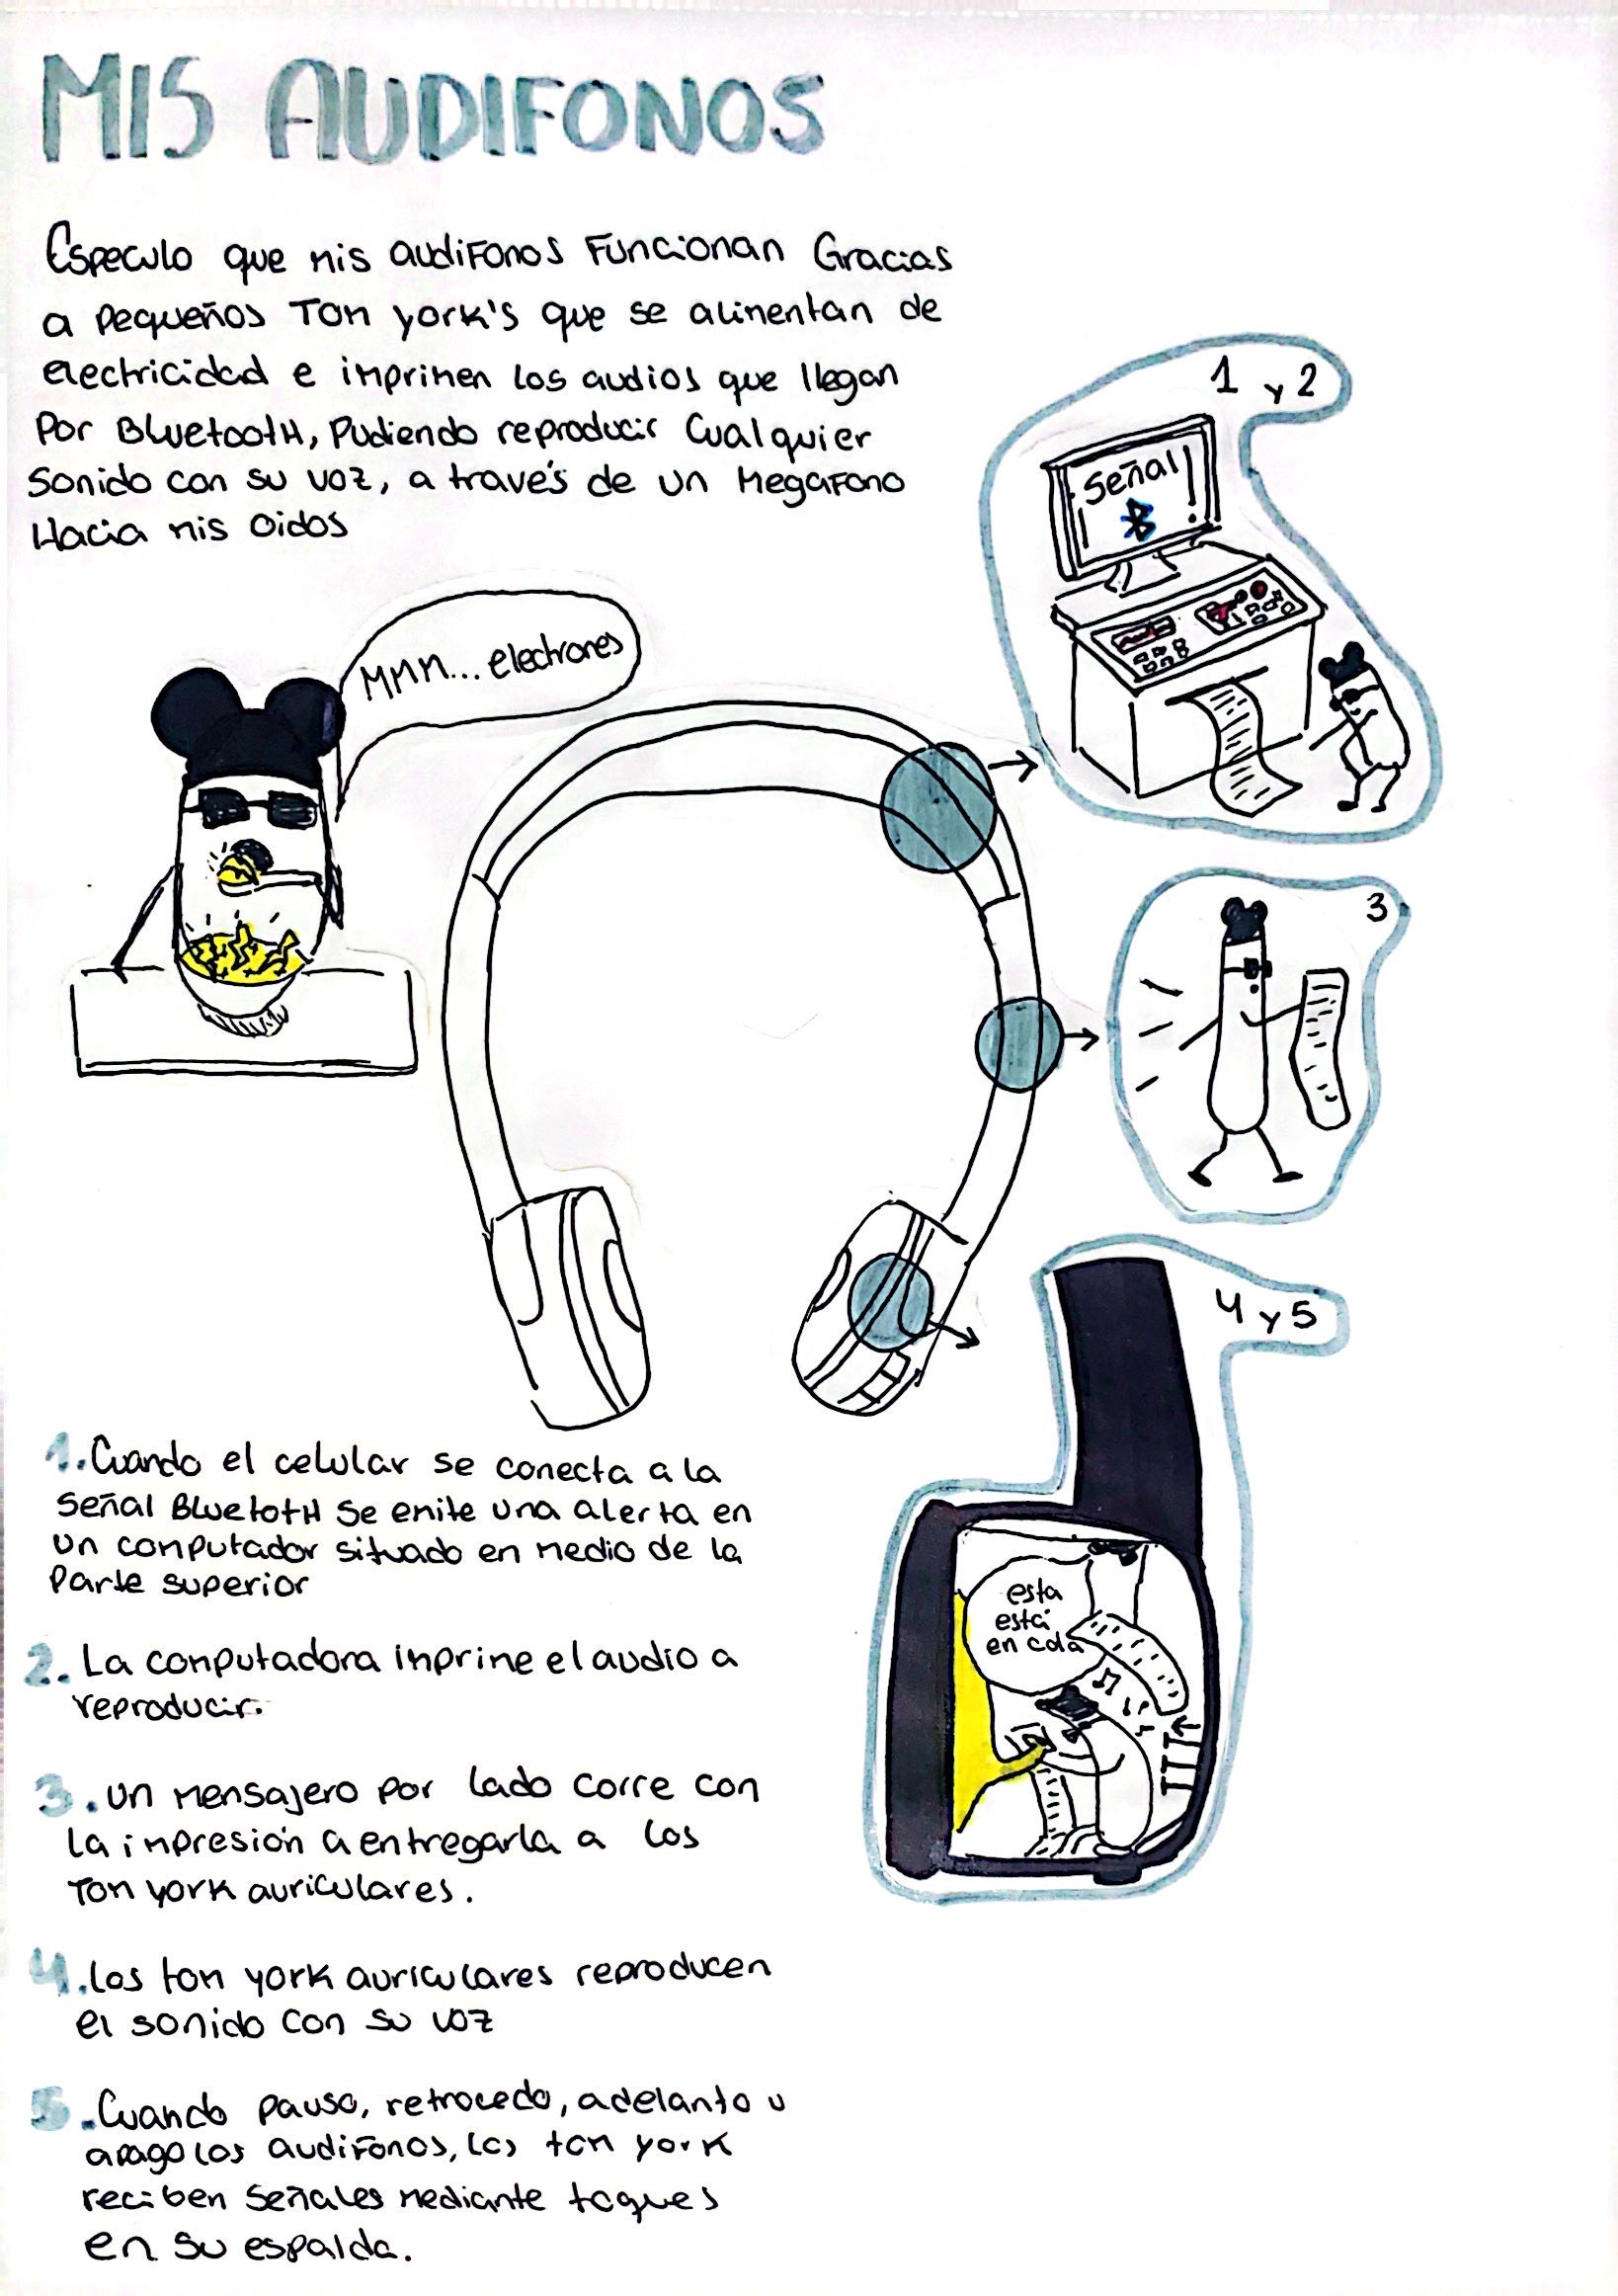 MIS AUDIFONOS
Especulo que mis audifonos Funcionan Gracias
a pequeños Tom york's que se alimentan de
electricidad e imprimen los audios que llegan
Por BluetootH, Pudiendo reproducir Cualquier
Sonido con su voz, a través de un Megafono
Hacia mis oidos
MMM... electrones
1 y 2
Señal
3
4 y 5
esta
está
en cola
1. Cuando el celular se conecta a la
Señal BluetotH Se emite una alerta en
un computador situado en medio de la
Parte superior
2. La computadora imprime el audio a
reproducir.
3. un mensajero por lado corre con
la impresión a entregarla a los
Tom york auriculares.
4. los tom york auriculares reproducen
el sonido con su voz
5. Cuando pauso, retrocedo, adelanto u
apago los audifonos, los tom york
reciben señales mediante toques
en su espalda.